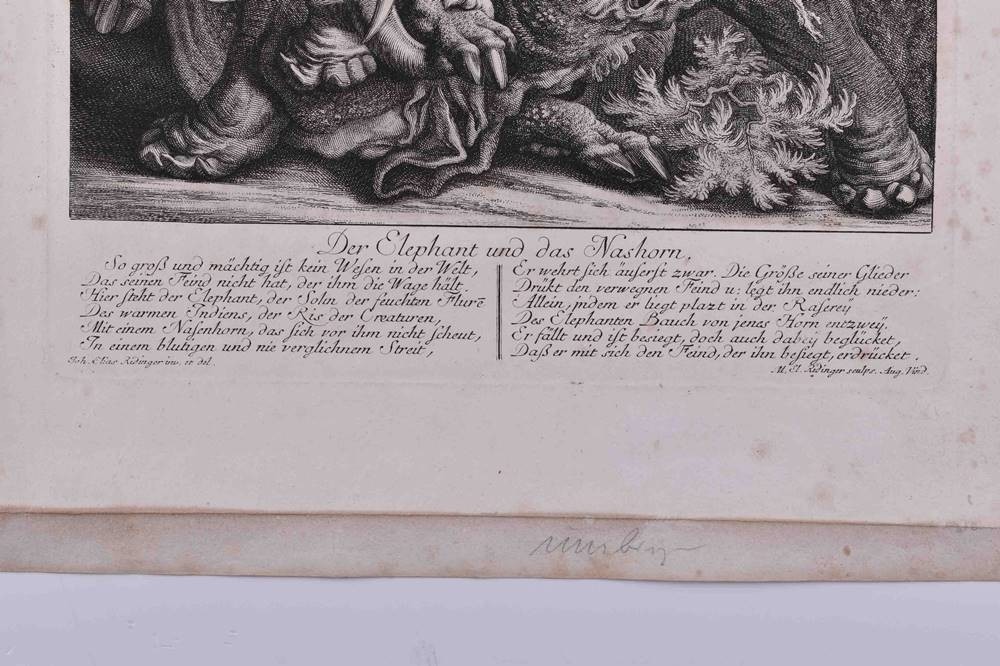 Der Elephant und das Nashorn.
So groß und mächtig ist kein Wesen in der Welt,
Das seinen Feind nicht hat, der ihm die Wage hält.
Hier steht der Elephant, der Sohn der feuchten Flurē
Des warmen Indiens, der Ris der Creaturen,
Mit einem Nasenhorn, das sich vor ihm nicht scheut,
In einem blutigen und nie verglichnem Streit,
Joh. Elias Ridinger inv. et del.
Er wehrt sich äuserst zwar. Die Größe seiner Glieder
Drükt den verwegnen Feind u: legt ihn endlich nieder:
Allein, jndem er liegt plazt in der Raserey
Des Elephanten Bauch von jenes Horn entzwey.
Er fällt und ist besiegt, doch auch dabey beglücket,
Daß er mit sich den Feind, der ihn besiegt, erdrücket.
M. El. Ridinger sculps. Aug. Vind.